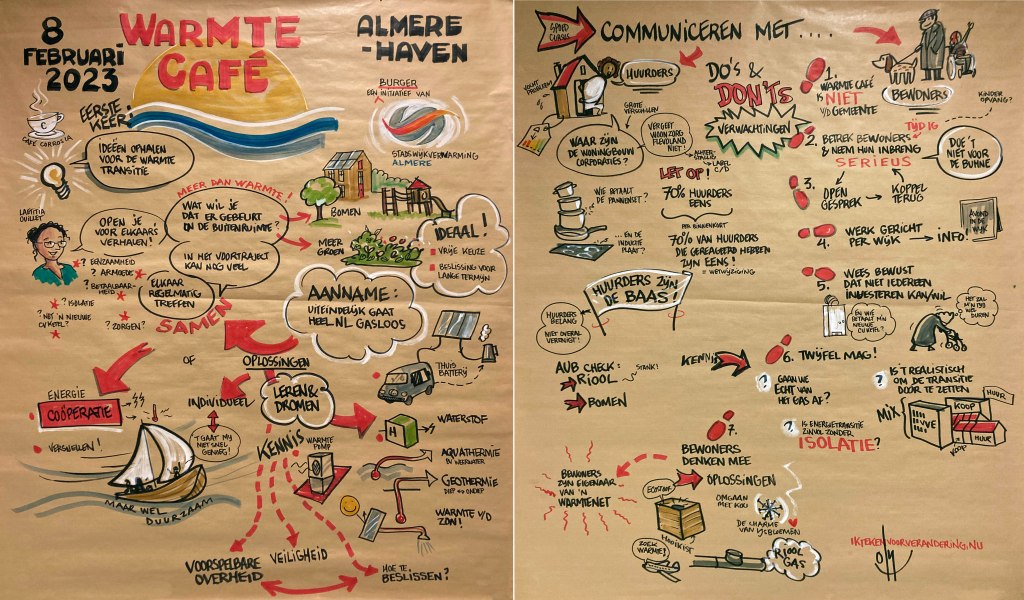 8
FEBRUARI
2023
WARMTE
CAFÉ
ALMERE
-HAVEN
BURGER
EEN INITIATIEF VAN
STADSWIJKVERWARMING
ALMERE
EERSTE
KEER!
CAFÉ CORROSIA
IDEËEN OPHALEN
VOOR DE WARMTE
TRANSITIE
MEER DAN WARMTE!
LAETITIA
OUILLET
OPEN JE
VOOR ELKAARS
VERHALEN!
WAT WIL JE
DAT ER GEBEURT
IN DE BUITENRUIMTE?
IN HET VOORTRAJECT
KAN NOG VEEL
ELKAAR
REGELMATIG
TREFFEN
SAMEN
? EENZAAMHEID
? ARMOEDE
? BETAALBAAR-
HEID
? ISOLATIE
? NET 'N NIEUWE
CV KETEL?
? ZORGEN?
BOMEN
MEER
GROEN
IDEAAL!
VRIJE KEUZE
BESLISSING VOOR
LANGE TERMIJN
AANNAME:
UITEINDELIJK GAAT
HEEL NL GASLOOS
OF
OPLOSSINGEN
THUIS
BATTERIJ
ENERGIE
COÖPERATIE
VERSNELLEN!
INDIVIDUEEL
'T GAAT MIJ
NIET SNEL
GENOEG!
LEREN &
DROMEN
KENNIS
WARMTE
POMP
H
WATERSTOF
AQUATHERMIE
BV WEERWATER
GEOTHERMIE
DIEP ↔ ONDIEP
WARMTE V/D
ZON!
MAAR WEL
DUURZAAM
VOORSPELBARE
OVERHEID
VEILIGHEID
HOE TE
BESLISSEN?
SPOED
CURSUS
COMMUNICEREN MET....
VOCHT
PROBLEMEN
HUURDERS
GROTE
VERSCHILLEN
WAAR ZIJN
DE WONINGBOUW
CORPORATIES?
VERGEET
WOONZORG
FLEVOLAND
NIET!
ACHTER-
STALLIG
LABEL
C/D
DO'S &
DON'TS
VERWACHTINGEN
LET OP!
70% HUURDERS
EENS
70% VAN HUURDERS
DIE GEREAGEERD HEBBEN
ZIJN EENS!
= WETWIJZIGING
WIE BETAALT
DE PANNENSET?
... EN DE
INDUCTIE
PLAAT?
HUURDERS ZIJN
DE BAAS!
HUURDERS
BELANG
NIET OVERAL
VERENIGT!
AUB CHECK:
RIOOL
STANK!
BOMEN
KENNIS
BEWONERS
KINDER
OPVANG?
1.
WARMTE CAFÉ
IS NIET
V/D GEMEENTE
TIJDIG
2. BETREK BEWONERS
& NEEM HUN INBRENG
SERIEUS
DOE 'T
NIET VOOR
DE BUHNE
3.
OPEN
GESPREK
KOPPEL
TERUG
4. WERK GERICHT
PER WIJK
INFO!
AVOND
IN DE
WIJK
5. WEES BEWUST
DAT NIET IEDEREEN
INVESTEREN KAN/WIL
EN WIE
BETAALT M'N
NIEUWE
CV KETEL?
HET ZAL
M'N TIJD
WEL
DUREN
6. TWIJFEL MAG!
? GAAN WE
ECHT VAN
HET GAS AF?
? IS 'T REALISTISCH
OM DE TRANSITIE
DOOR TE ZETTEN
? IS ENERGIETRANSITIE
ZINVOL ZONDER
ISOLATIE?
MIX
VVE
KOOP
HUUR
HUUR
KOOP
7.
BEWONERS
DENKEN MEE
OPLOSSINGEN
BEWONERS
ZIJN EIGENAAR
VAN 'N
WARMTENET
ECOSTOOF
HOOIKIST
OMGAAN
MET KOU
DE CHARME
VAN IJSBLOEMEN
ZOEK
WARMTE!
RIOOL
GAS
IKTEKENVOORVERANDERING.NU